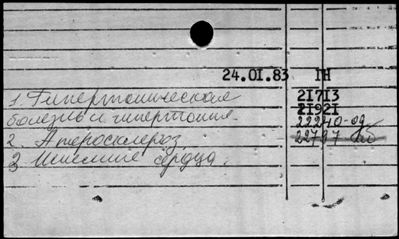 24.01.83 IH
1. Гипертоническая 21713
болезнь и гипертония. 21921
22240-09
2. Атеросклероз 22797
3. Ишемия сердца.